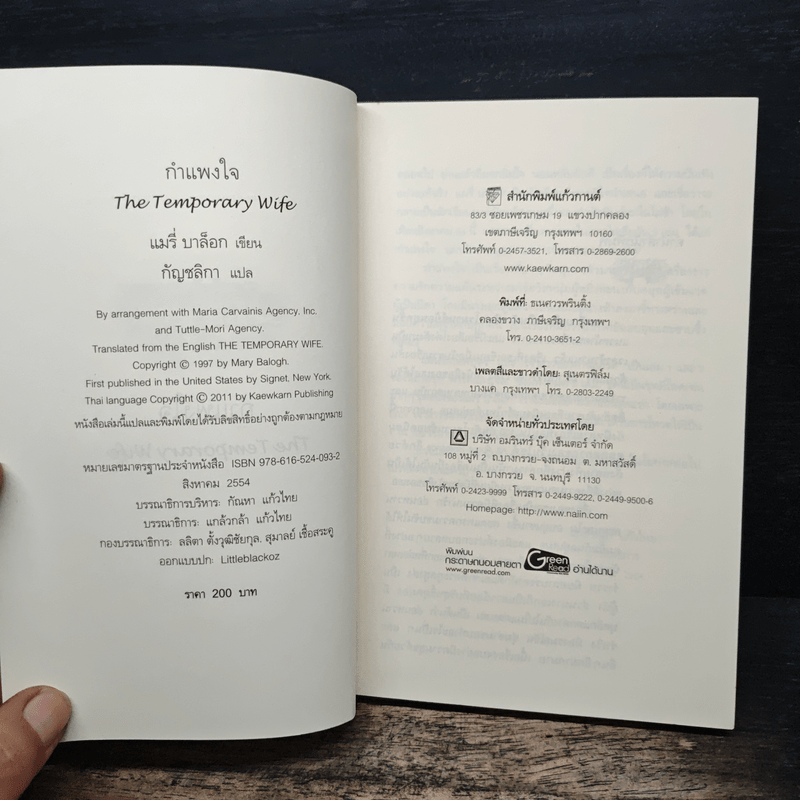 กำแพงใจ
The Temporary Wife
แมรี่ บาล็อก เขียน
กัญชลิกา แปล
By arrangement with Maria Carvainis Agency, Inc.
and Tuttle-Mori Agency.
Translated from the English THE TEMPORARY WIFE.
Copyright © 1997 by Mary Balogh.
First published in the United States by Signet, New York.
Thai language Copyright © 2011 by Kaewkarn Publishing
หนังสือเล่มนี้แปลและพิมพ์โดยได้รับลิขสิทธิ์อย่างถูกต้องตามกฎหมาย
หมายเลขมาตรฐานประจำหนังสือ ISBN 978-616-524-093-2
สิงหาคม 2554
บรรณาธิการบริหาร: กัณหา แก้วไทย
บรรณาธิการ: แกล้วกล้า แก้วไทย
กองบรรณาธิการ: ลลิตา ตั้งวุฒิชัยกุล, สุมาลย์ เชื้อสระคู
ออกแบบปก: Littleblackoz
ราคา 200 บาท
สำนักพิมพ์แก้วกานต์
83/3 ซอยเพชรเกษม 19 แขวงปากคลอง
เขตภาษีเจริญ กรุงเทพฯ 10160
โทรศัพท์ 0-2457-3521, โทรสาร 0-2869-2600
www.kaewkarn.com
พิมพ์ที่: ธเนศวรพรินติ้ง
คลองขวาง ภาษีเจริญ กรุงเทพฯ
โทร. 0-2410-3651-2
เพลตสีและขาวดำโดย: สุเนตรฟิล์ม
บางแค กรุงเทพฯ โทร. 0-2803-2249
จัดจำหน่ายทั่วประเทศโดย
บริษัท อมรินทร์ บุ๊ค เซ็นเตอร์ จำกัด
108 หมู่ที่ 2 ถ.บางกรวย-จงถนอม ต. มหาสวัสดิ์
อ. บางกรวย จ. นนทบุรี 11130
โทรศัพท์ 0-2423-9999 โทรสาร 0-2449-9222, 0-2449-9500-6
Homepage: http://www.naiin.com
พิมพ์บน
กระดาษถนอมสายตา
www.greenread.com
Green
Read
อ่านได้นาน